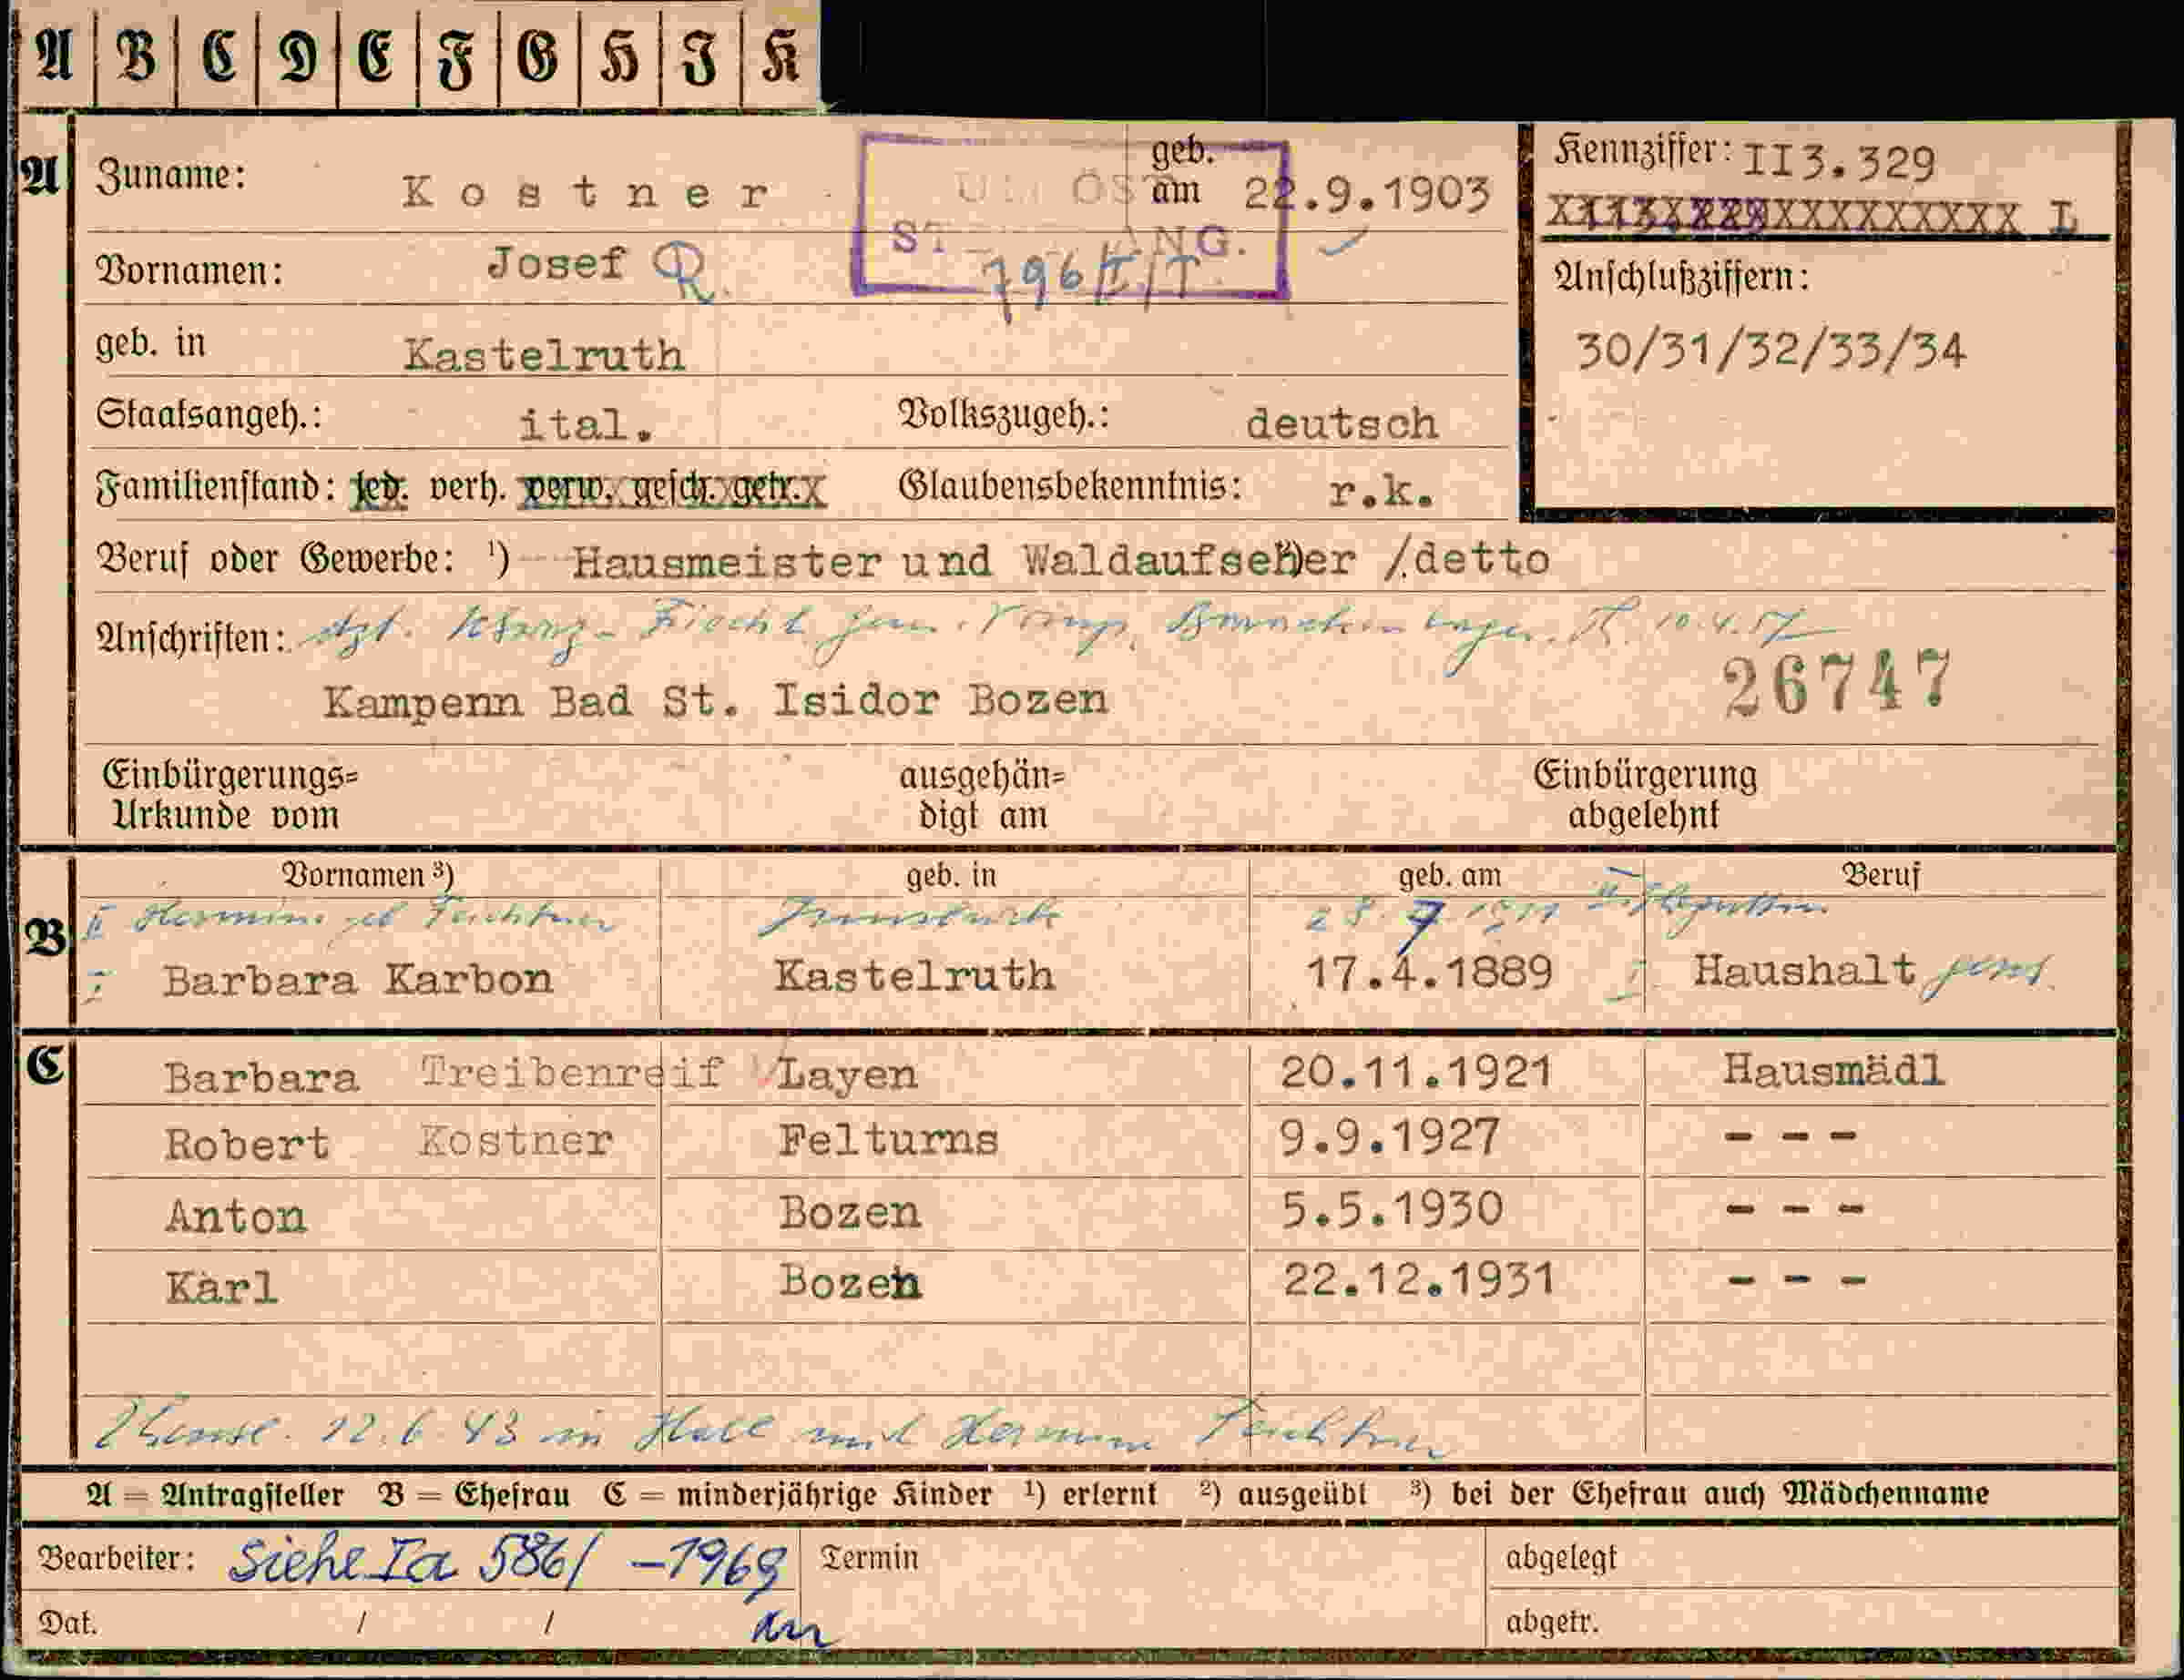 A B C D E F G H I K
A Zuname: Kostner geb. am 22.9.1903 Kennziffer: II3.329
L
Vornamen: Josef R. ST NG. 796/I/T
Anschlußziffern:
geb. in Kastelruth 30/31/32/33/34
Staatsangeh.: ital. Volkszugeh.: deutsch
Familienstand: led. verh. verw. gesch. getr. Glaubensbekenntnis: r.k.
Beruf oder Gewerbe: ¹) Hausmeister und Waldaufseher /.detto
Anschriften: 10.4.57
Kampenn Bad St. Isidor Bozen 26747
Einbürgerungs= ausgehän= Einbürgerung
Urkunde vom digt am abgelehnt
Vornamen ³) geb. in geb. am Beruf
B II Hermine geb Feichtner Innsbruck 28.7.1911 II
I Barbara Karbon Kastelruth 17.4.1889 I Haushalt
C Barbara Treibenreif Layen 20.11.1921 Hausmädl
Robert Kostner Felturns 9.9.1927 - - -
Anton Bozen 5.5.1930 - - -
Karl Bozen 22.12.1931 - - -
12.6.43 in Hall mit Hermine Feichtner
A = Antragsteller B = Ehefrau C = minderjährige Kinder ¹) erlernt ²) ausgeübt ³) bei der Ehefrau auch Mädchenname
Bearbeiter: siehe Ia 586/ -1969 Termin abgelegt
Dat. / / abgetr.